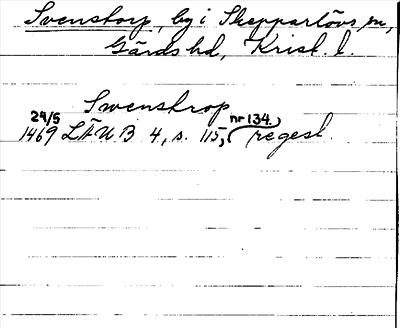 Svenstorp, by i Skepparlövs sn,
Gärds hd, Krist. l.
Swenstrop
24/5 1469 LÄUB 4, s. 115, (nr 134.) regest.